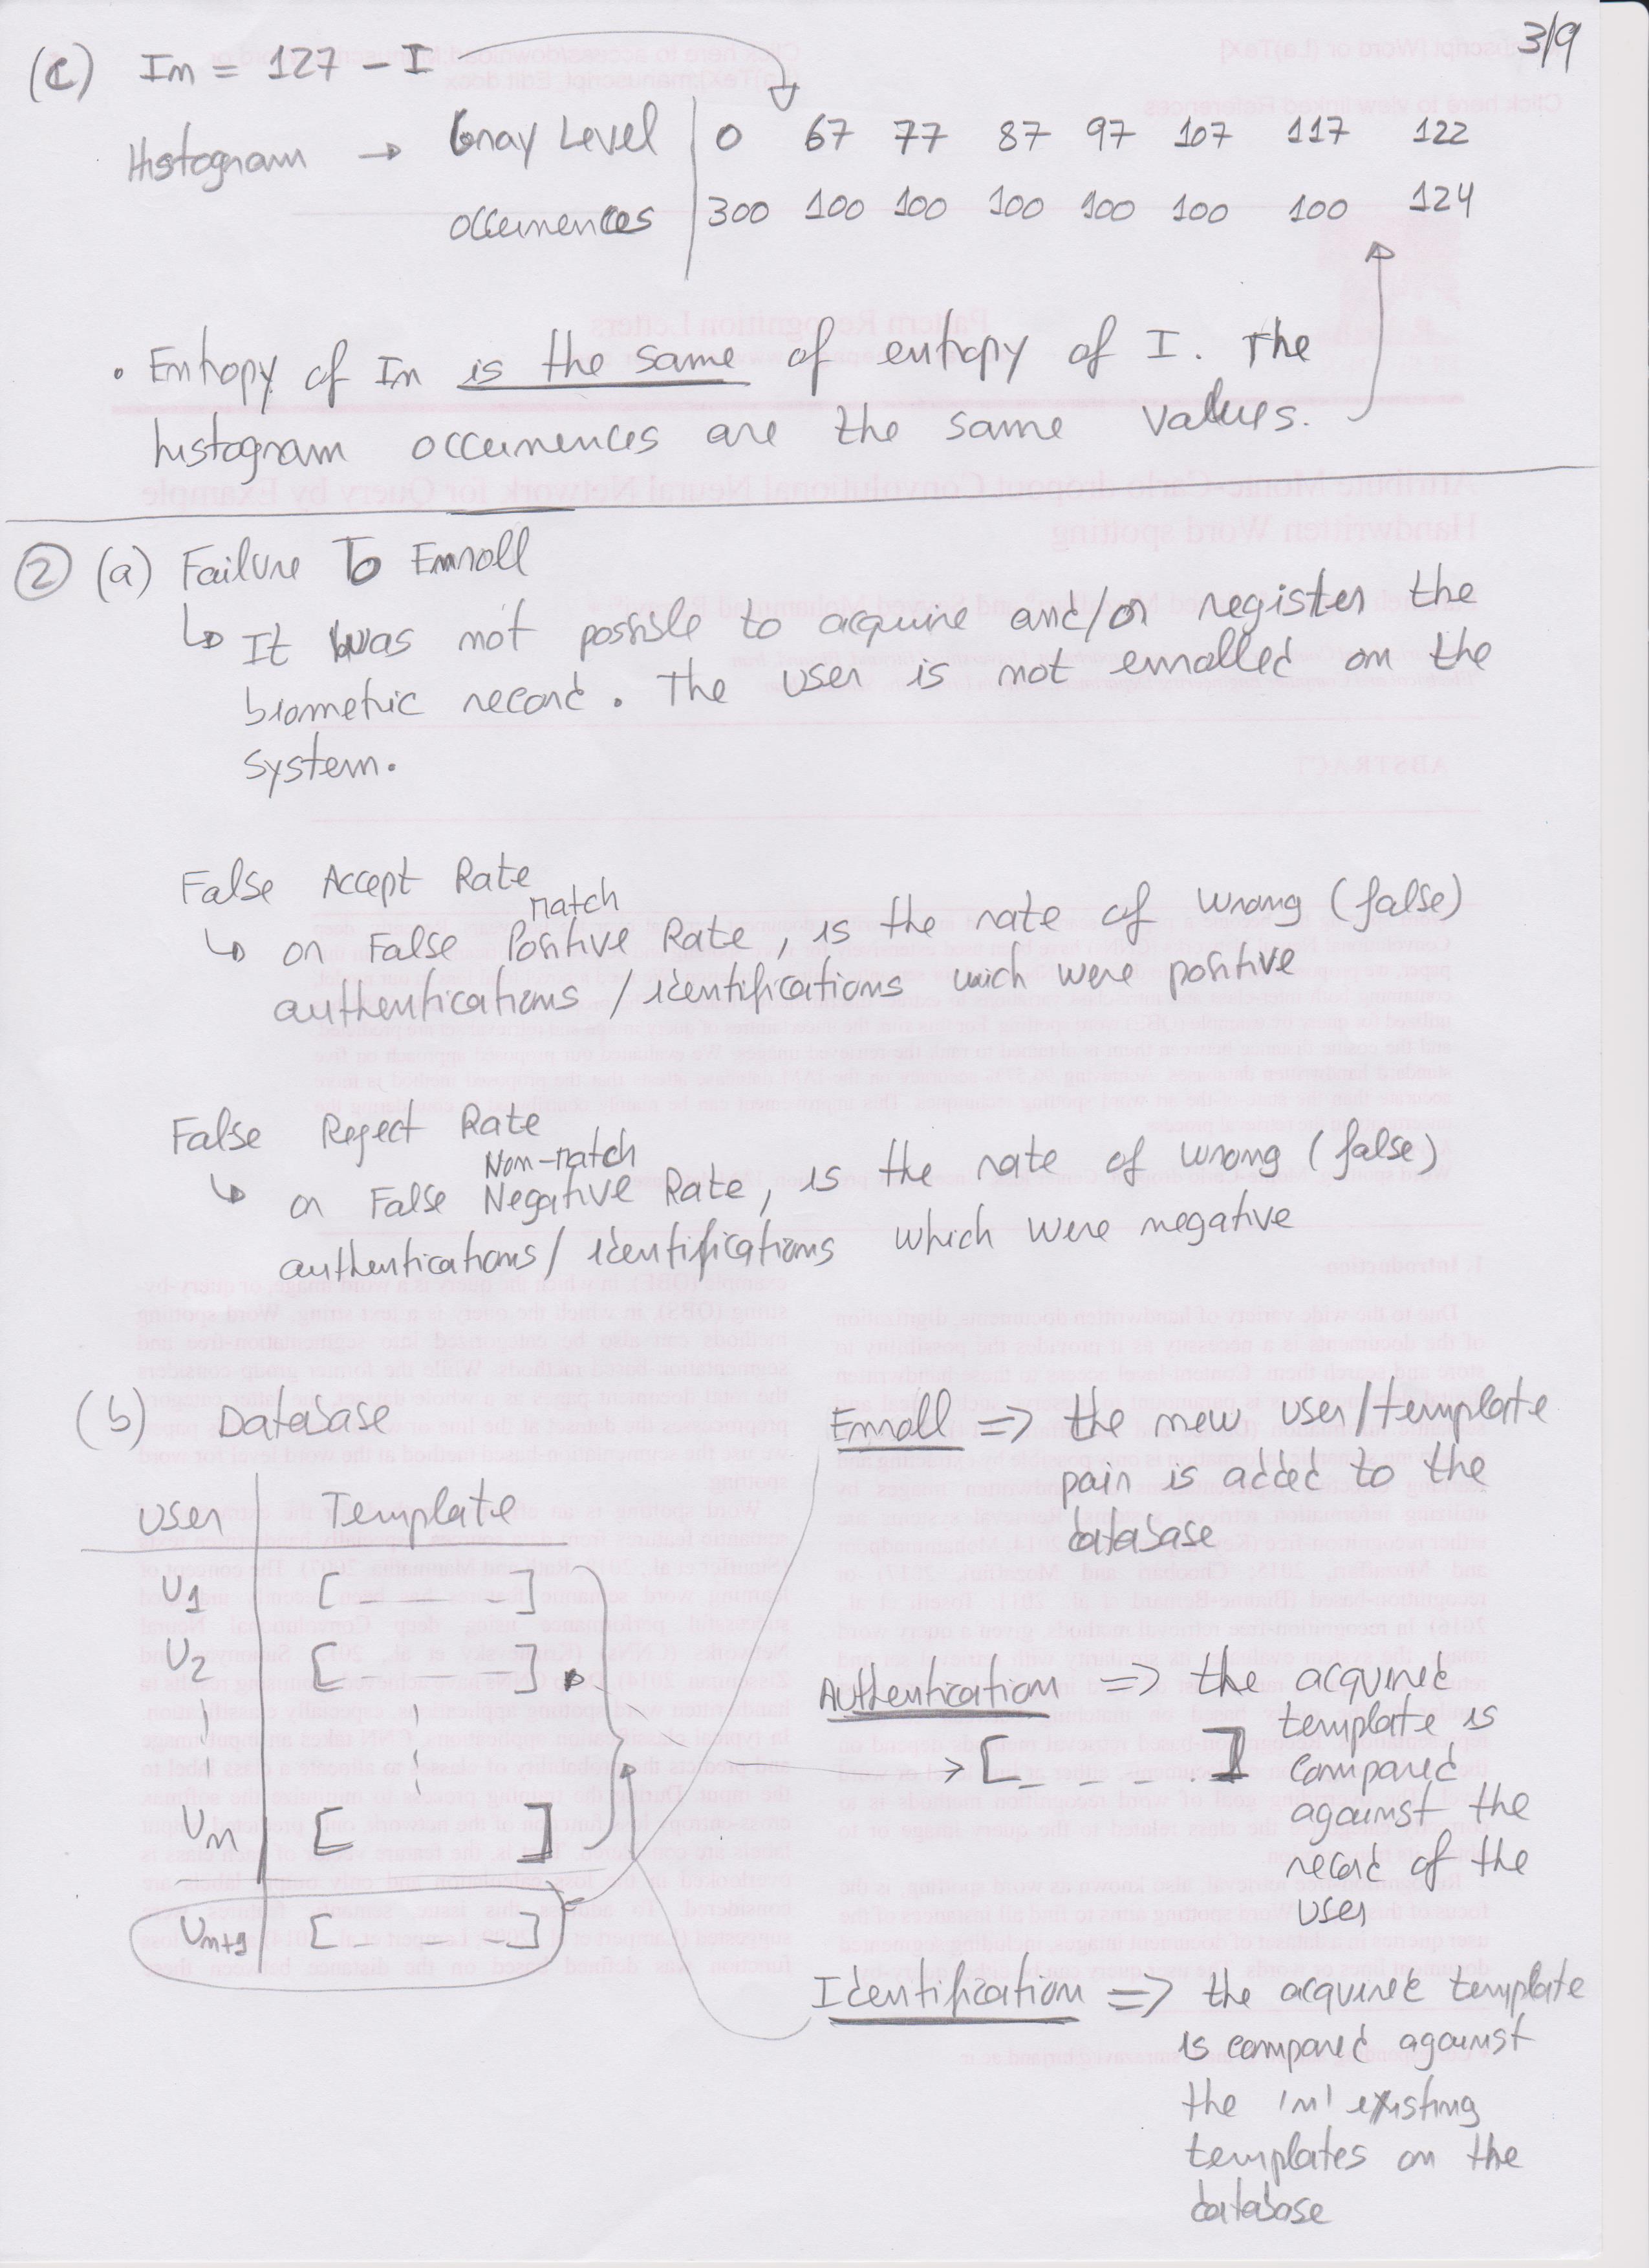 3/9
(c) In = 127 - I
Histogram → Gray Level | 0 67 77 87 97 107 117 122
occurrences | 300 100 100 100 100 100 100 124
• Entropy of In is the same of entropy of I. The
histogram occurrences are the same values.
2 (a) Failure To Enroll
↳ It was not possible to acquire and/or register the
biometric record. The user is not enrolled on the
system.
False Accept Rate
match
↳ or False Positive Rate, is the rate of wrong (false)
authentications / identifications which were positive
False Reject Rate
Non-match
↳ or False Negative Rate, is the rate of wrong (false)
authentications / identifications which were negative
(b) Database
User | Template
U1 [ _ _ _ ]
U2 [ _ _ _ ]
Un [ ]
Un+1 [ _ _ _ ]
Enroll => the new user/template
pair is added to the
database
Authentication => the acquired
template is
[ _ _ _ . ] compared
against the
record of the
user
Identification => the acquired template
is compared against
the 'n' existing
templates on the
database